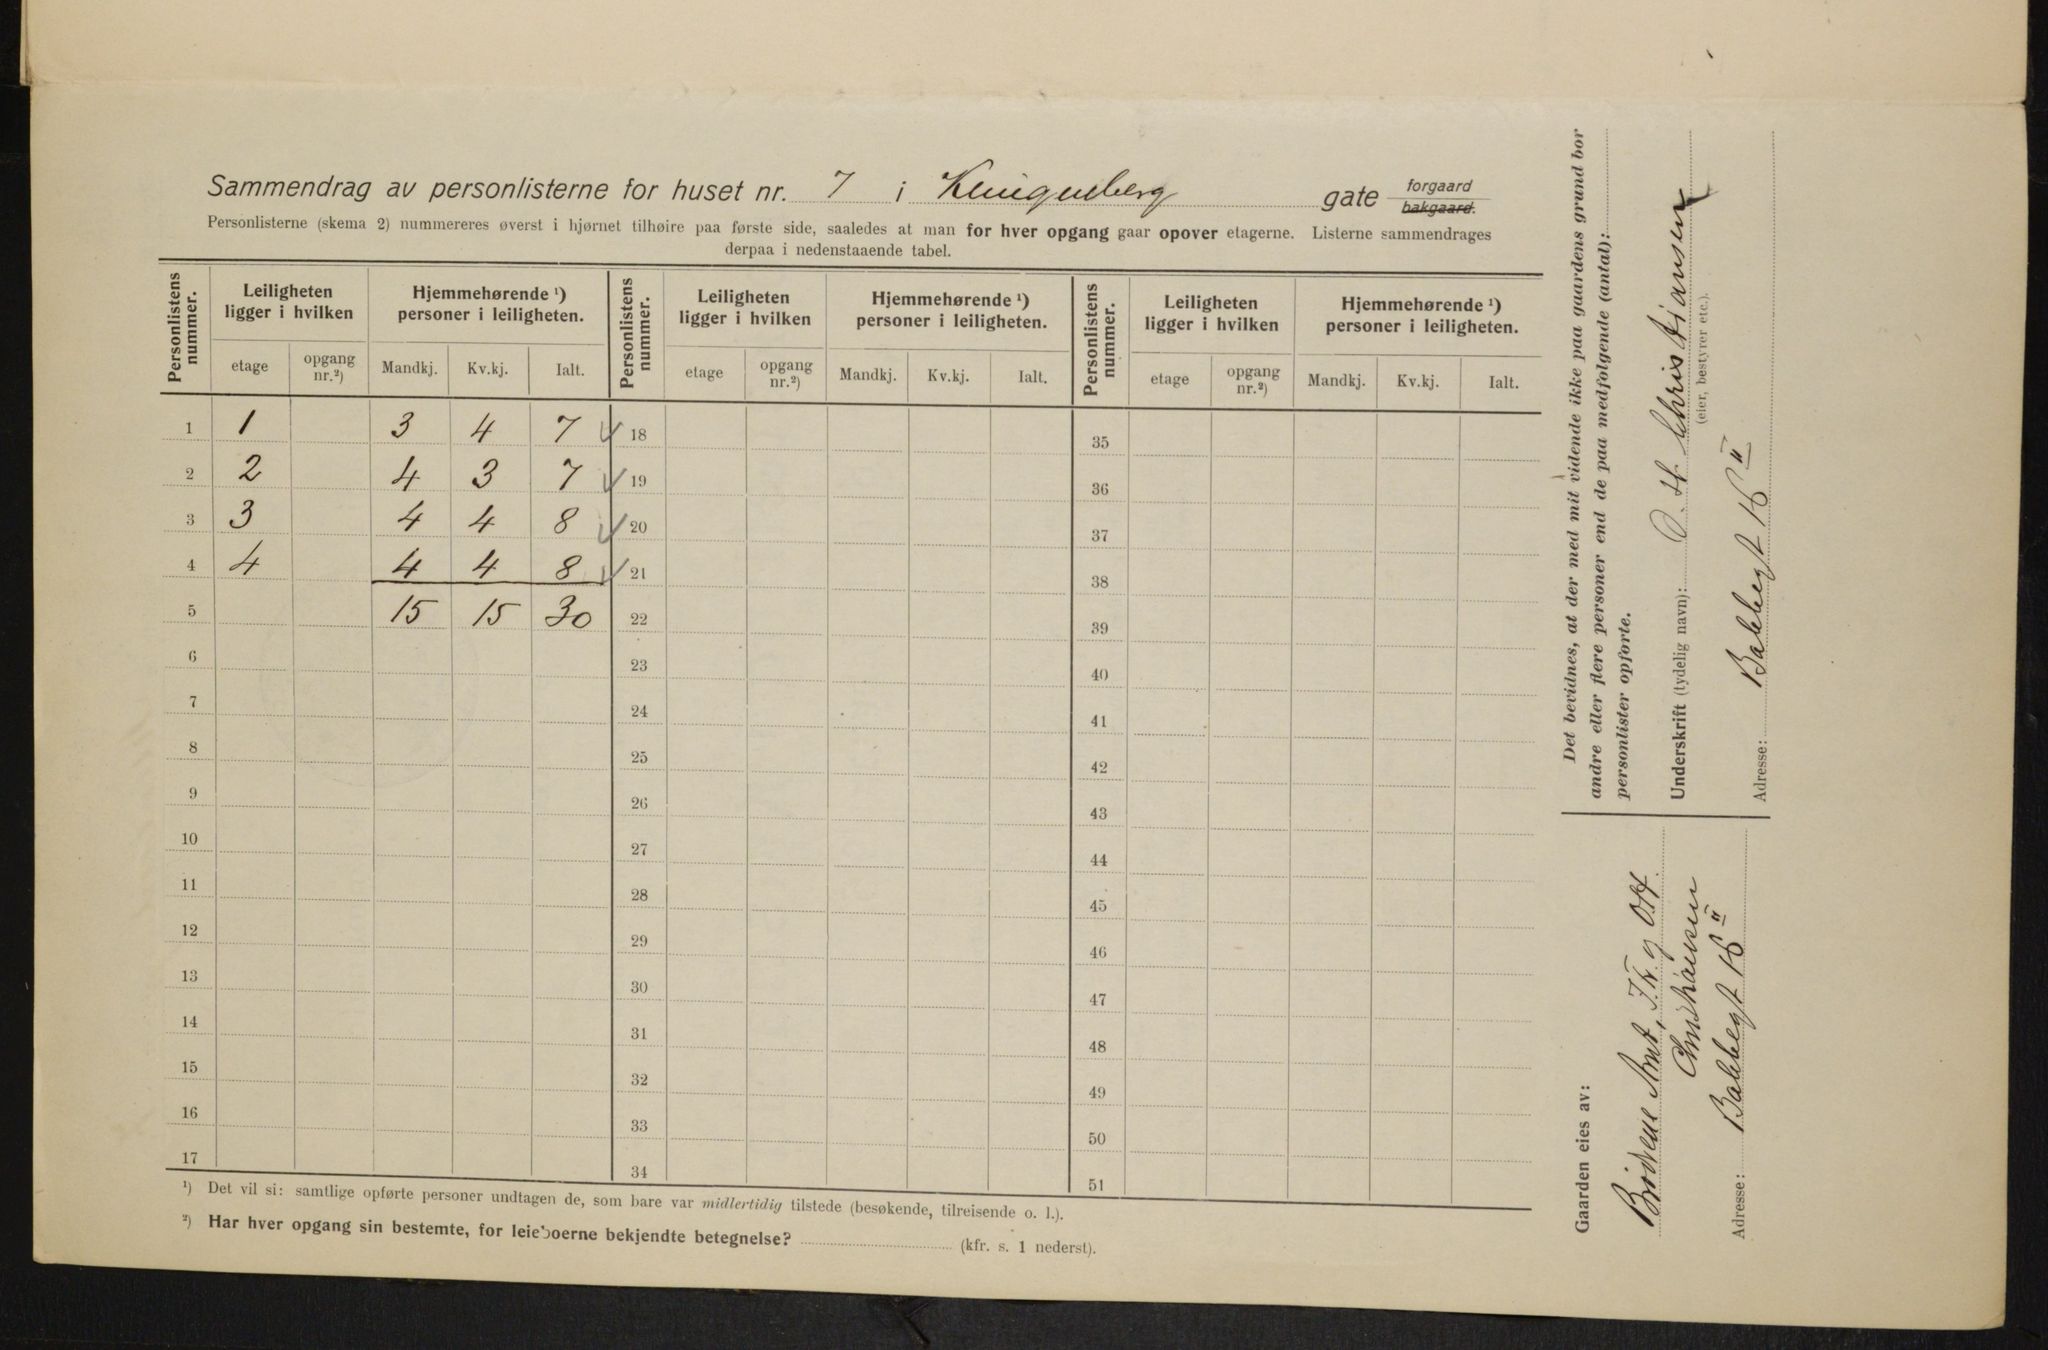 Sammendrag av personlisterne for huset nr. 7 i Klingenberg gate forgaard bakgaard.
Personlisterne (skema 2) nummereres øverst i hjørnet tilhøire paa første side, saaledes at man for hver opgang gaar opover etagerne. Listerne sammendrages
derpaa i nedenstaaende tabel.
Personlistens nummer. Leiligheten ligger i hvilken Hjemmehørende ¹) personer i leiligheten. Personlistens nummer. Leiligheten ligger i hvilken Hjemmehørende ¹) personer i leiligheten. Personlistens nummer. Leiligheten ligger i hvilken Hjemmehørende ¹) personer i leiligheten.
etage opgang nr.²) Mandkj. Kv.kj. Ialt. etage opgang nr.²) Mandkj. Kv.kj. Ialt. etage opgang nr.²) Mandkj. Kv.kj. Ialt.
1 1 3 4 7 18 35
2 2 4 3 7 19 36
3 3 4 4 8 20 37
4 4 4 4 8 21 38
5 15 15 30 22 39
6 23 40
7 24 41
8 25 42
9 26 43
10 27 44
11 28 45
12 29 46
13 30 47
14 31 48
15 32 49
16 33 50
17 34 51
¹) Det vil si: samtlige opførte personer undtagen de, som bare var midlertidig tilstede (besøkende, tilreisende o. l.).
²) Har hver opgang sin bestemte, for leieboerne bekjendte betegnelse? (kfr. s. 1 nederst).
Det bevidnes, at der med mit vidende ikke paa gaardens grund bor
andre eller flere personer end de paa medfølgende (antal):
personlister opførte.
Underskrift (tydelig navn): O. H. Christiansen
(eier, bestyrer etc.).
Adresse: Bakkegt 16 II
Gaarden eies av:
Brødrene Arnt, Fr. og O.H.
Christiansen
Adresse: Bakkegt 16 II